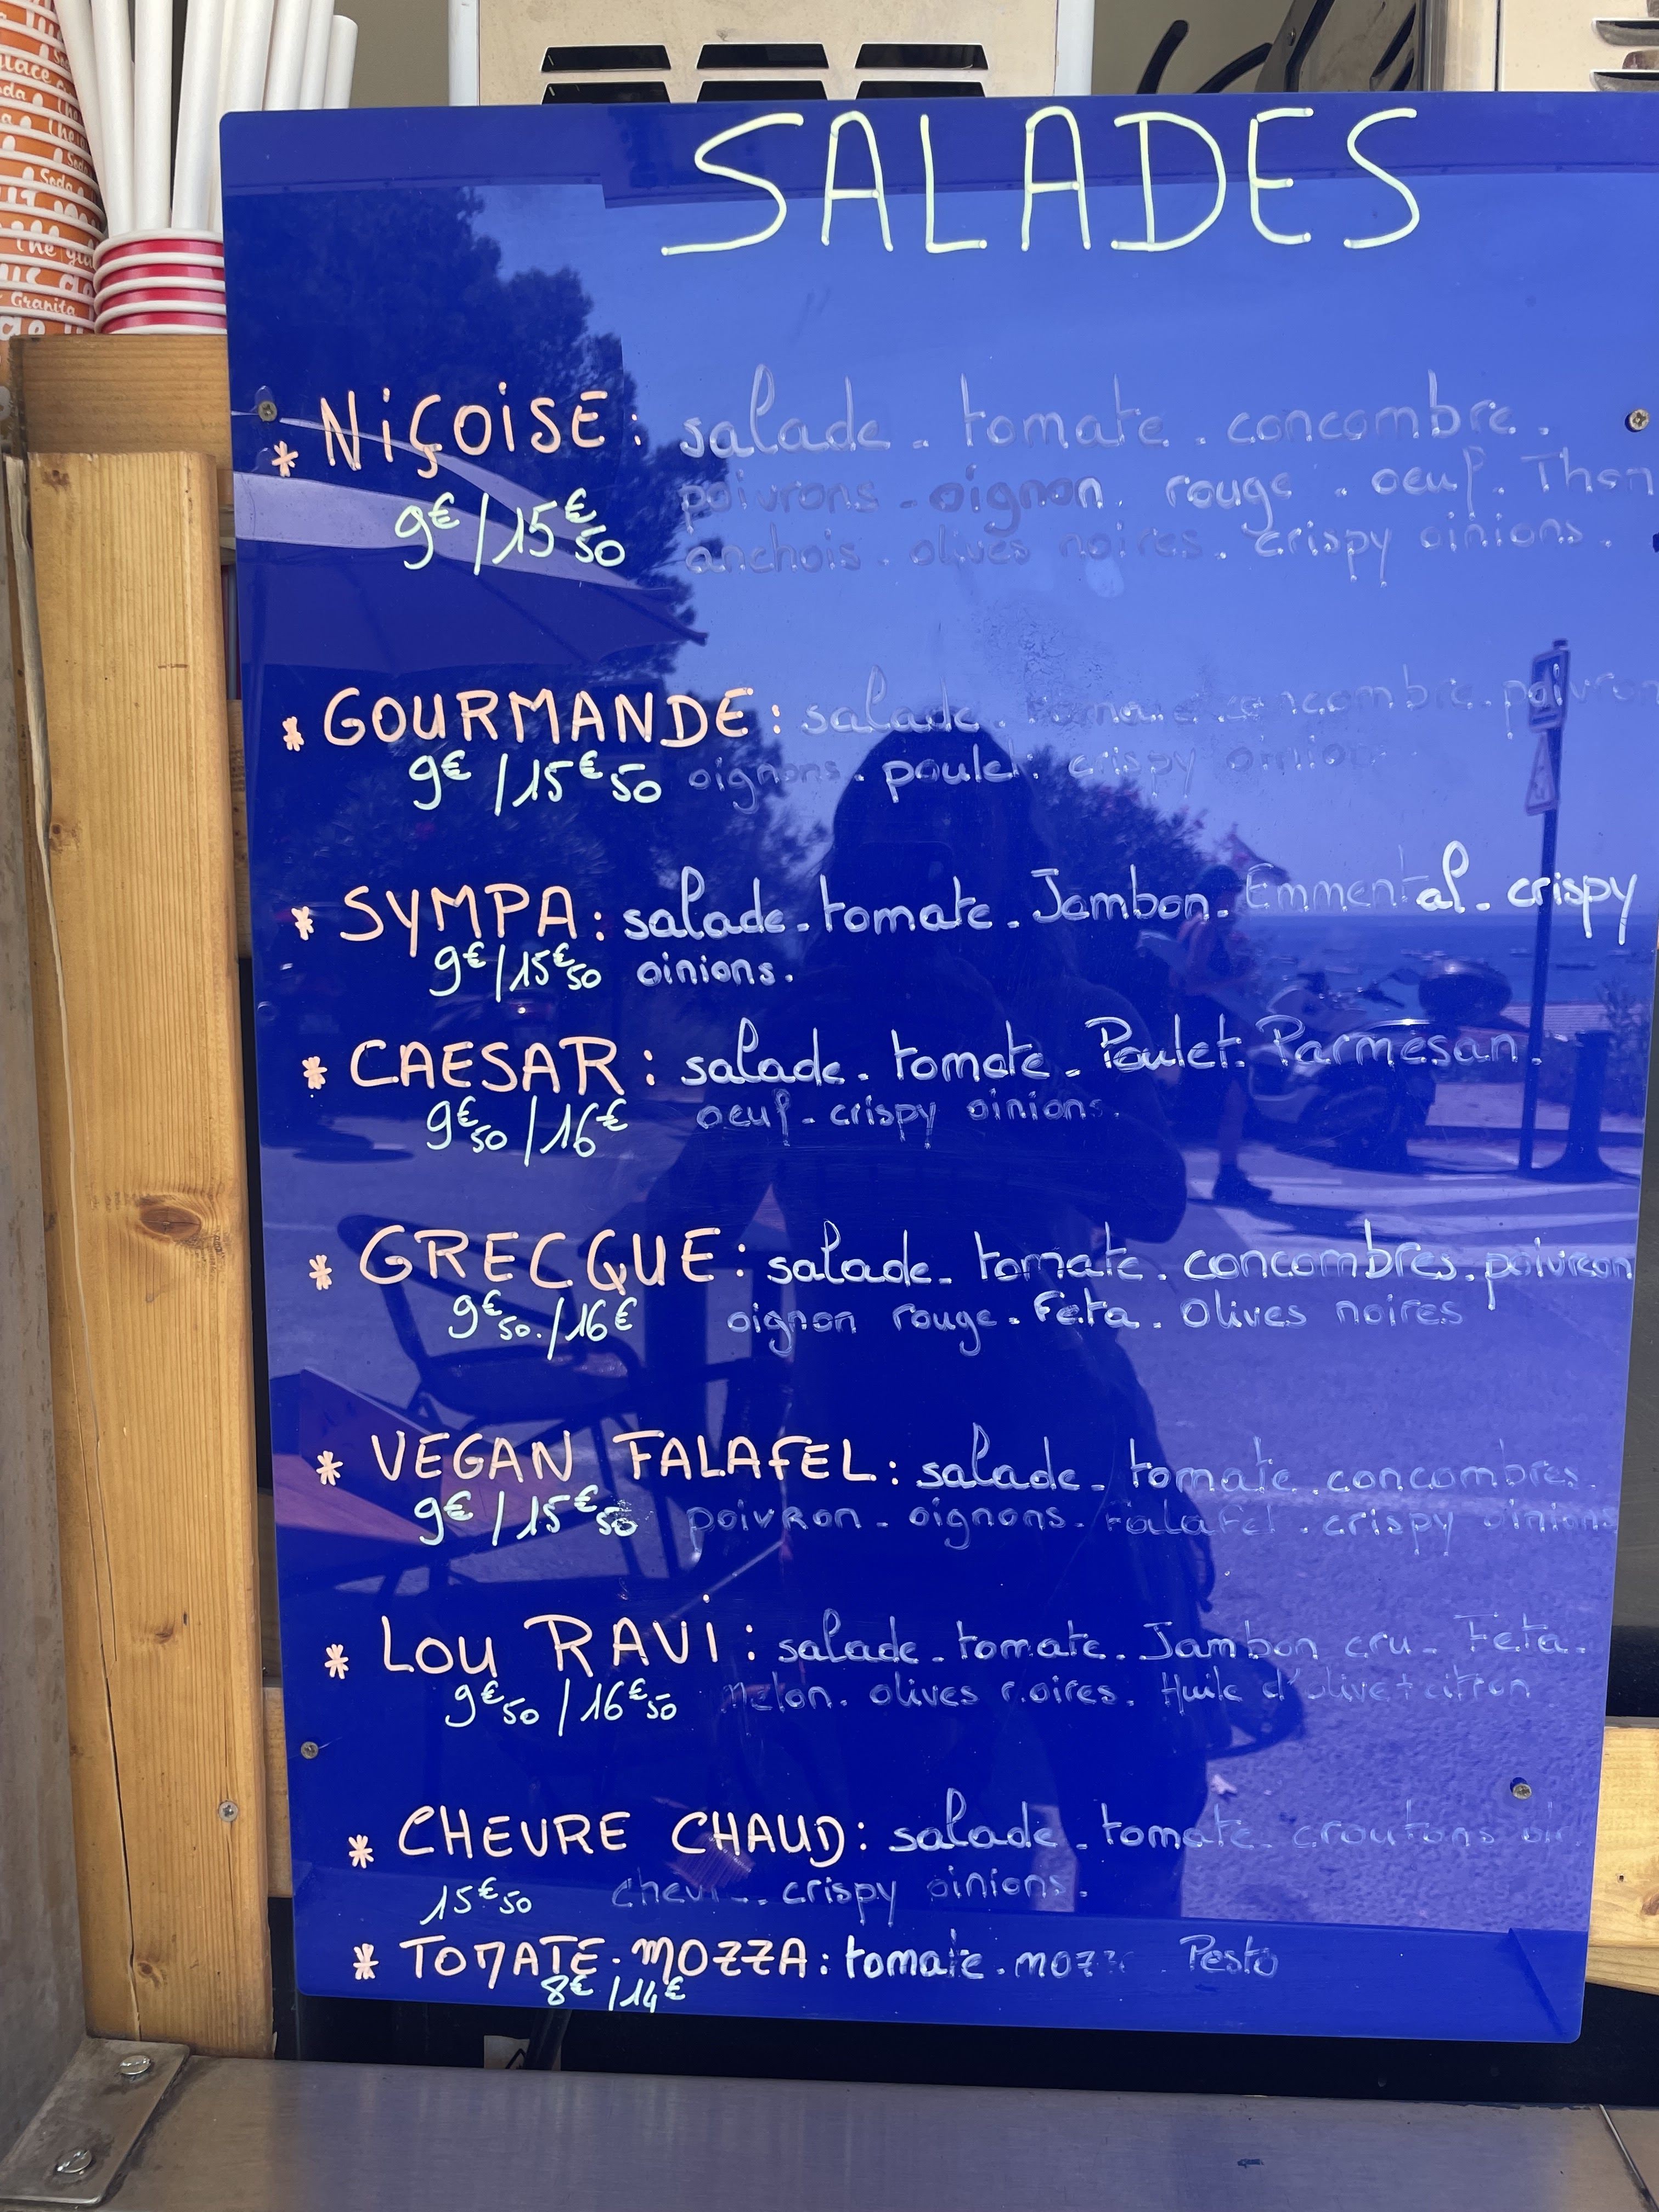 SALADES
* NIÇOISE : salade - tomate - concombre.
9€ / 15€50 poivrons - oignon. rouge. oeuf. Thon
anchois. olives noires. crispy oinions.
* GOURMANDE : salade. tomate concombre. poivron
9€ / 15€50 oignons. poulet. crispy oinions
* SYMPA : salade - tomate - Jambon - Emmental - crispy
9€ / 15€50 oinions.
* CAESAR : salade - tomate - Poulet. Parmesan.
9€50 / 16€ oeuf - crispy oinions.
* GRECQUE : salade - tomate. concombres. poivron
9€50. / 16€ oignon rouge - Feta. olives noires
* VEGAN FALAFEL : salade - tomate. concombres.
9€ / 15€50 poivron - oignons - Falafel. crispy oinions
* LOU RAVI : salade - tomate. Jambon cru - Feta.
9€50 / 16€50 Melon. olives noires. Huile d'olive + citron
* CHEVRE CHAUD : salade - tomate - croutons
15€50 chevre. crispy oinions.
* TOMATE - MOZZA : tomate. mozza Pesto
8€ / 14€
glace
Soda
Granita